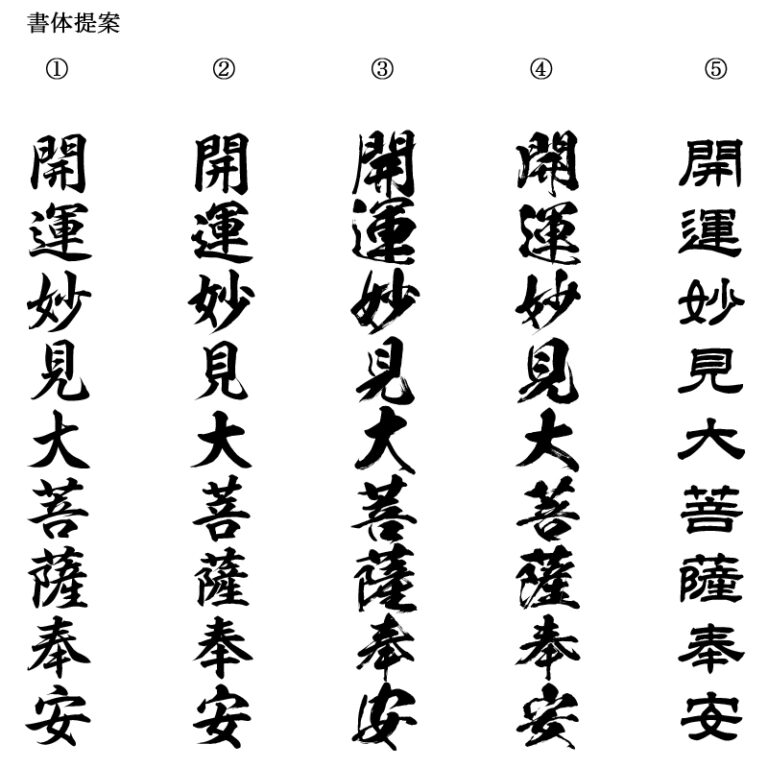 書体提案
① ② ③ ④ ⑤
開運妙見大菩薩奉安
開運妙見大菩薩奉安
開運妙見大菩薩奉安
開運妙見大菩薩奉安
開運妙見大菩薩奉安